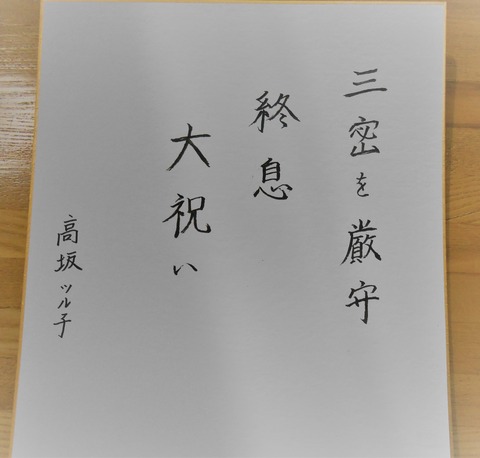 三密を厳守
終息
大祝い
高坂ツル子